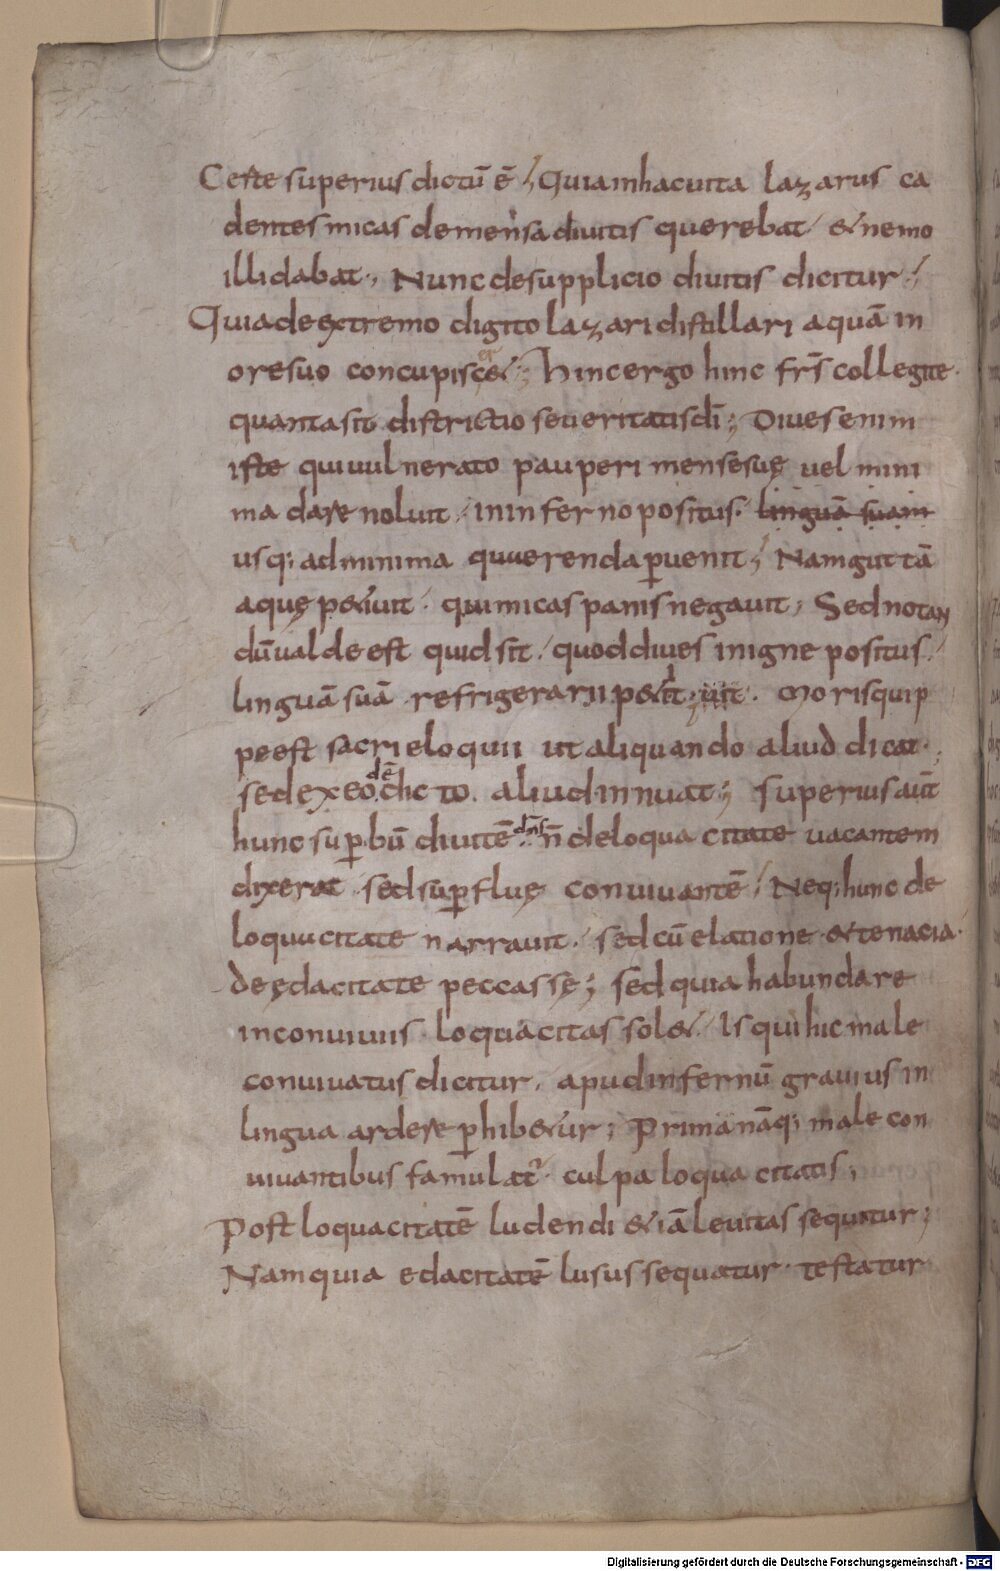 Certe superius dictū ē; Quia in hac uita lazarus ca
dentes micas de mensa diuitis querebat. & nemo
illi dabat. Nunc de supplicio diuitis dicitur;
Quia de extremo digito lazari distillari aquā in
ore suo concupisc&; Hinc ergo hinc frs̄ colligite.
quanta sit districtio seueritatis dī; Diues enim
iste qui uulnerato pauperi mense suę uel mini
ma dare noluit. in inferno positus. linguā suam
usq; ad minima querenda ꝑuenit; Nam guttā
aquę p&iuit. qui micas panis negauit; Sed notan
dū ualde est quid sit. quod diues in igne positus.
linguā suā refrigerari p&iit; Moris quip
pe est sacri eloquii ut aliquando aliud dicat.
sed ex eodē dicto. aliud innuat; superius aūt
hunc suꝑbū diuitē dn̄s n̄ de loquacitate uacantem
dixerat. sed suꝑfluę conuiuantē; Neq; hunc de
loquacitate narrauit. sed cū elatione & tenacia.
de ędacitate peccasse; sed quia habundare
in conuiuiis loquacitas sol&. Is qui hic male
conuiuatus dicitur. apud infernū grauius in
lingua ardere ꝑhib&ur; Prima nāq; male con
uiuantibus famulat᷒. culpa loquacitatis;
Post loquacitatē ludendi &iā leuitas sequitur;
Nam quia edacitatē lusus sequatur. testatur
Digitalisierung gefördert durch die Deutsche Forschungsgemeinschaft - DFG